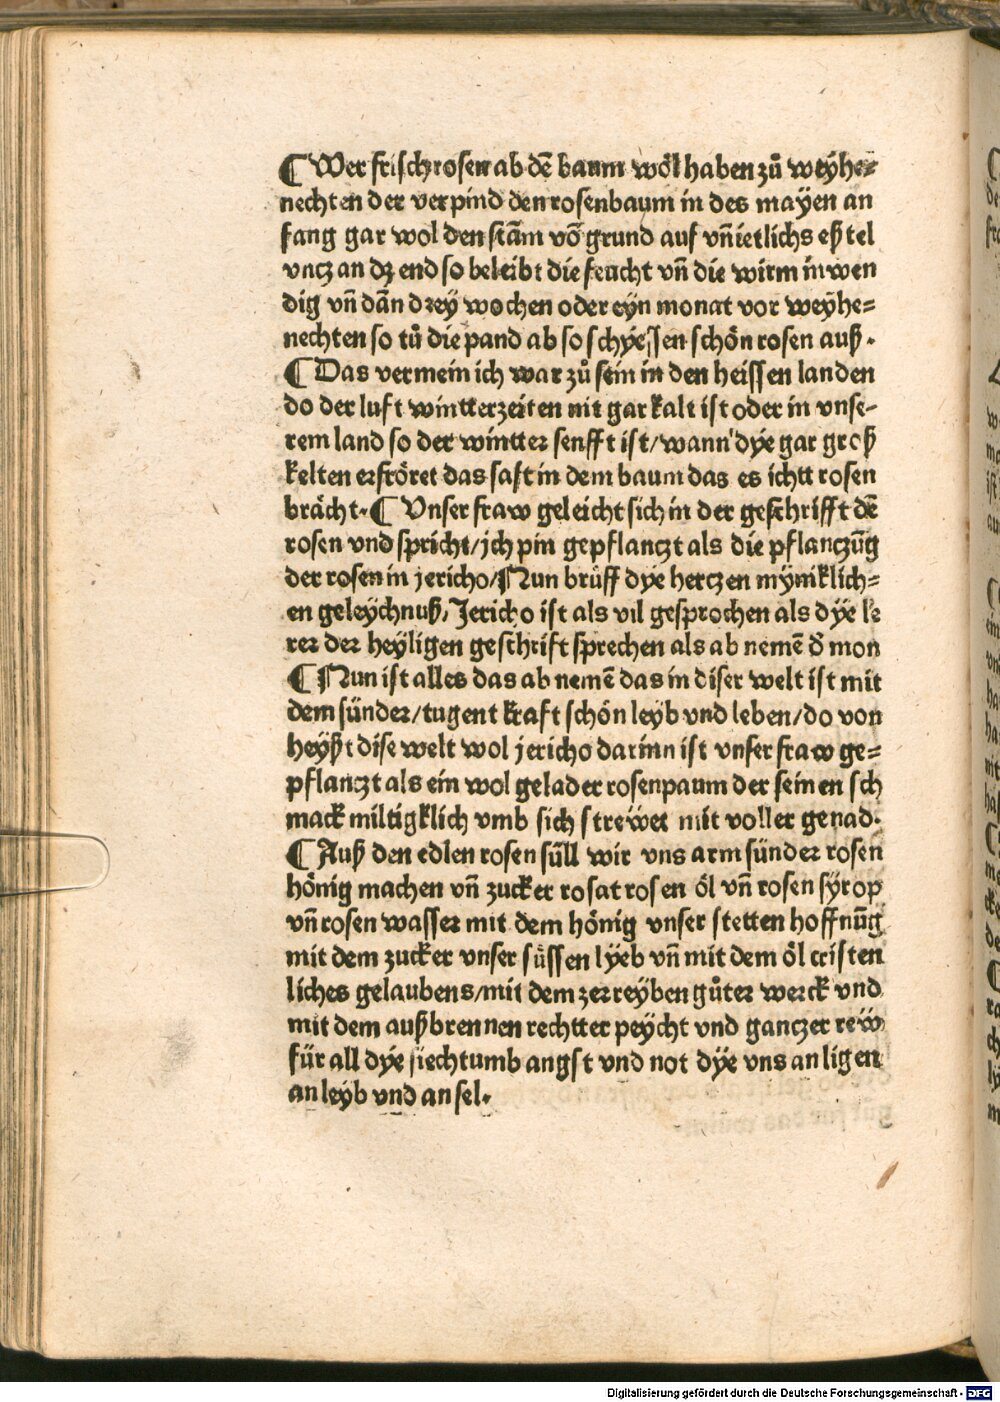 ¶ Wer frisch rosen ab dē baum wöl haben zů weÿhe⸗
nechten der verpind den rosenbaum in des mayen an
fang gar wol den stām vō grund auf vn̄ ietlichs eſztel
vntz an dz end so beleibt die feucht vn̄ die wirm inwen
dig vn̄ dān drey wochen oder eyn monat vor weÿhe⸗
nechten so tů die pand ab so schyessen schön rosen auß.
¶ Das vermein ich war zů sein in den heissen landen
do der luft wintterzeiten nit gar kalt ist oder in vnse⸗
rem land so der wintter senfft ist/wann dye gar groß
kelten erfröret das saft in dem baum das es ichtt rosen
brächt. ¶ Unser fraw geleicht sich in der geschrifft dē
rosen vnd spricht/jch pin gepflanczt als die pflanczūg
der rosen in jericho/Nun brüff dye hertzen mÿniklich⸗
en geleÿchnuß/Jericho ist als vil gesprochen als dÿe le
rer der heÿligen geschrift sprechen als ab nemē d̕ mon
¶ Nun ist alles das ab nemē das in diser welt ist mit
dem sünder/tugent kraft schön leyb vnd leben/do von
heÿßt dise welt wol jericho darinn ist vnser fraw ge⸗
pflanczt als ein wol gelader rosenpaum der seinen sch
mack miltigklich vmb sich strewet mit voller genad.
¶ Auß den edlen rosen süll wir vns arm sünder rosen
hönig machen vn̄ zucker rosat rosen öl vn̄ rosen sÿrop
vn̄ rosen wasser mit dem hönig vnser stetten hoffnūg
mit dem zucker vnser süssen lÿeb vn̄ mit dem öl cristen
liches gelaubens/mit dem zerreÿben gůter werck vnd
mit dem außbrennen rechtter peÿcht vnd ganczer rew
für all dÿe siechtumb angst vnd not dÿe vns an ligen
an leyb vnd an sel.
Digitalisierung gefördert durch die Deutsche Forschungsgemeinschaft - DFG